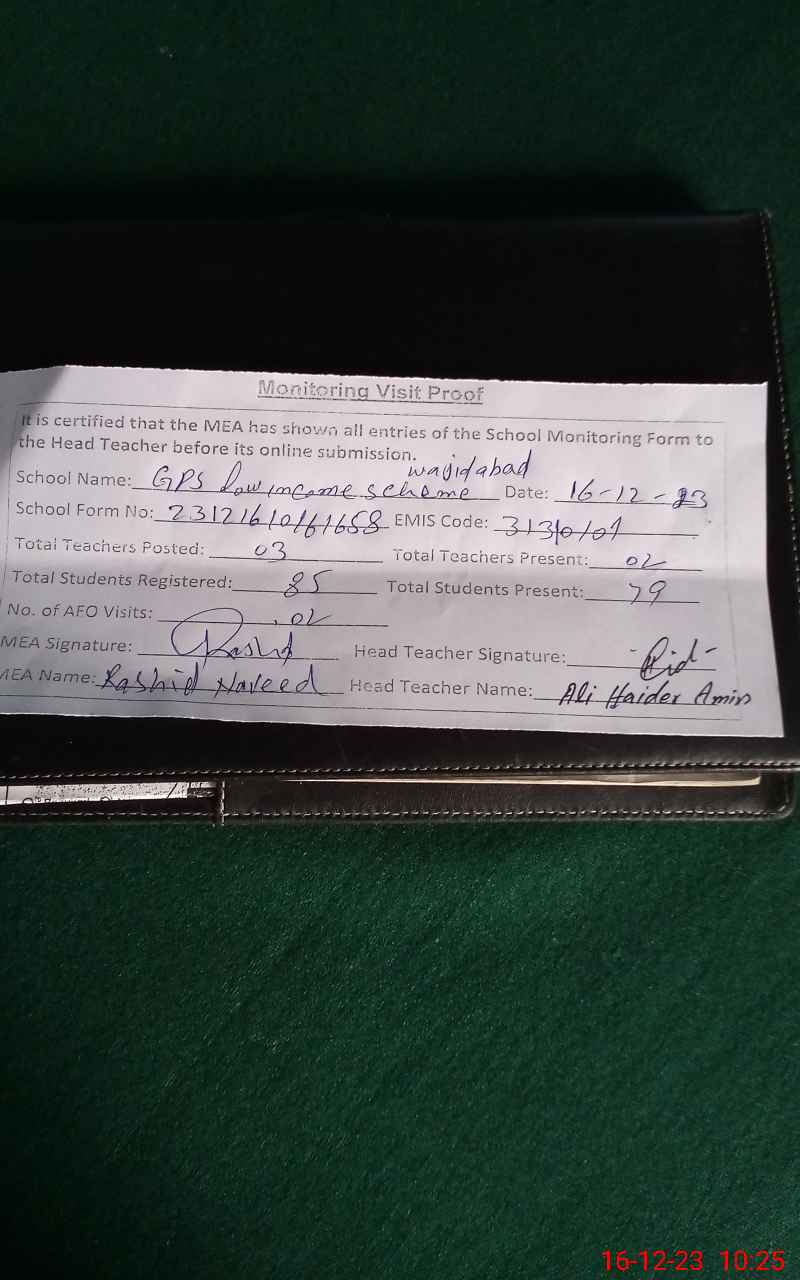 Monitoring Visit Proof
It is certified that the MEA has shown all entries of the School Monitoring Form to
the Head Teacher before its online submission.
wajidabad
School Name: GPS low income scheme Date: 16-12-23
School Form No: 23121610161658 EMIS Code: 31310101
Total Teachers Posted: 03 Total Teachers Present: 02
Total Students Registered: 85 Total Students Present: 79
No. of AFO Visits: 02
MEA Signature: Rashid Head Teacher Signature:
MEA Name: Rashid Naveed Head Teacher Name: Ali Haider Amin
16-12-23 10:25